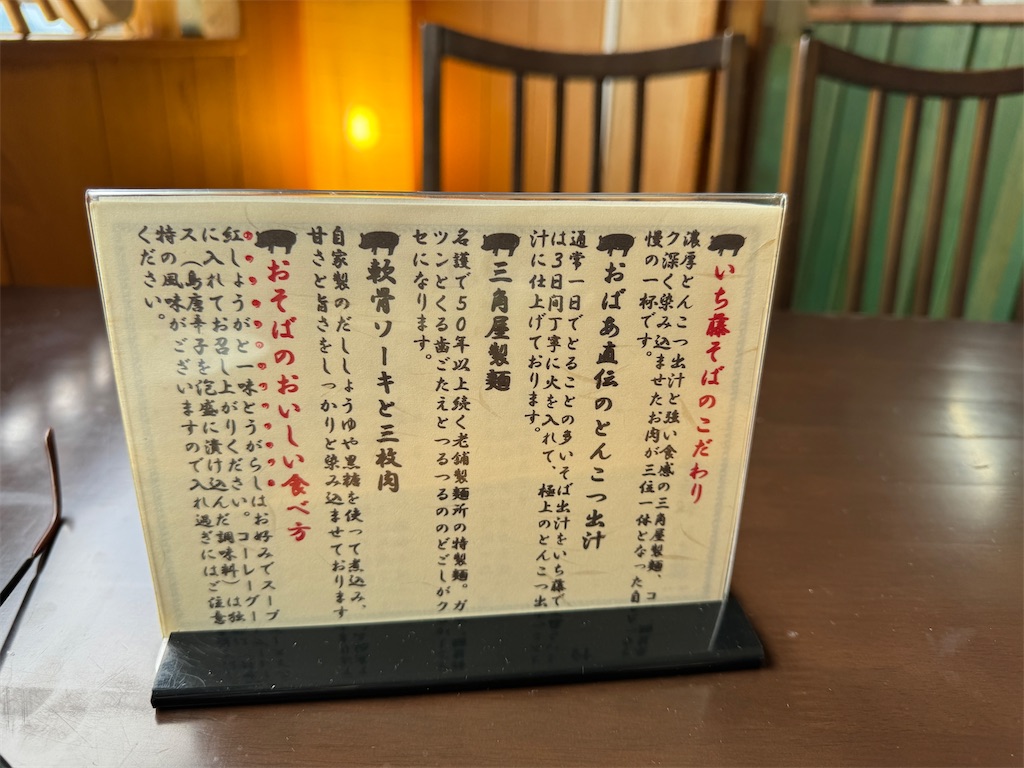 いち藤そばのこだわり
濃厚とんこつ出汁と強い食感の三角屋製麺、コ
ク深く染み込ませたお肉が三位一体となった自
慢の一杯です。
おばあ直伝のとんこつ出汁
通常一日でとることの多いそば出汁をいち藤で
は3日間丁寧に火を入れて、極上のとんこつ出
汁に仕上げております。
三角屋製麺
名護で50年以上続く老舗製麺所の特製麺。ガ
ツンとくる歯ごたえとつるつるののどごしがク
セになります。
軟骨ソーキと三枚肉
自家製のだししょうゆや黒糖を使って煮込み、
甘さと旨さをしっかりと染み込ませております
おそばのおいしい食べ方
紅しょうがと一味とうがらしはお好みでスープ
に入れてお召し上がりください。コーレーグー
ス（島唐辛子を泡盛に漬け込んだ調味料）は独
特の風味がございますので入れ過ぎにはご注意
ください。